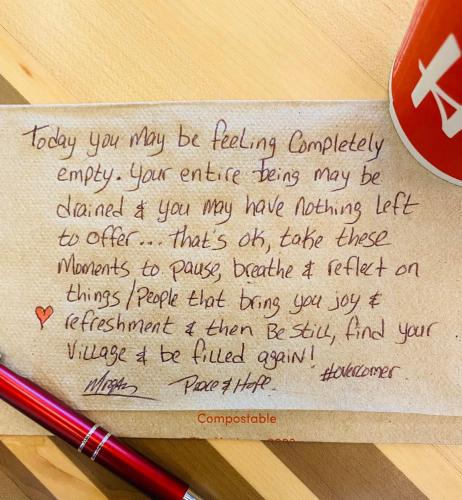 Today you may be feeling Completely
empty. Your entire being may be
drained & you may have nothing left
to offer... That's ok, take these
moments to pause, breathe & reflect on
things/People that bring you joy &
refreshment & then Be Still, find your
Village & be filled again!
Peace & Hope #overcomer
Compostable